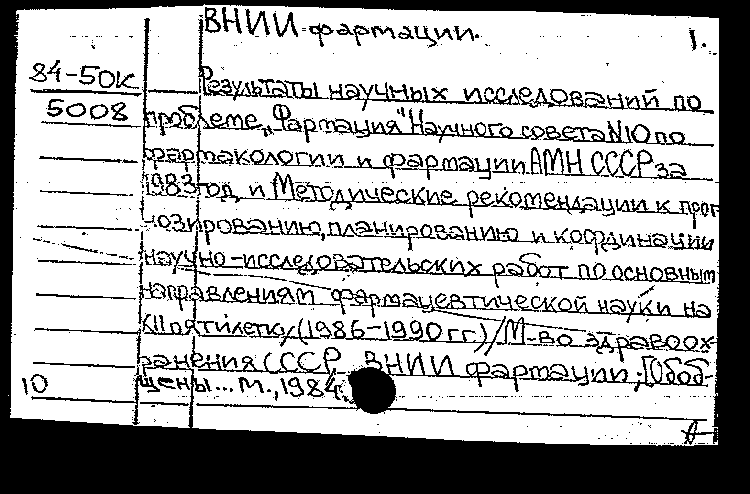 ВНИИ фармации. 1.
84-50к Результаты научных исследований по
5008 проблеме „Фармация" Научного совета N10 по
фармакологии и фармации АМН СССР за
1983 год и Методические рекомендации к прог
нозированию, планированию и координации
научно-исследовательских работ по основным
направлениям фармацевтической науки на
XII пятилетку (1986-1990 гг.) / М-во здравоох-
ранения СССР, ВНИИ фармации; [Обоб-
10 щены... М., 1984.